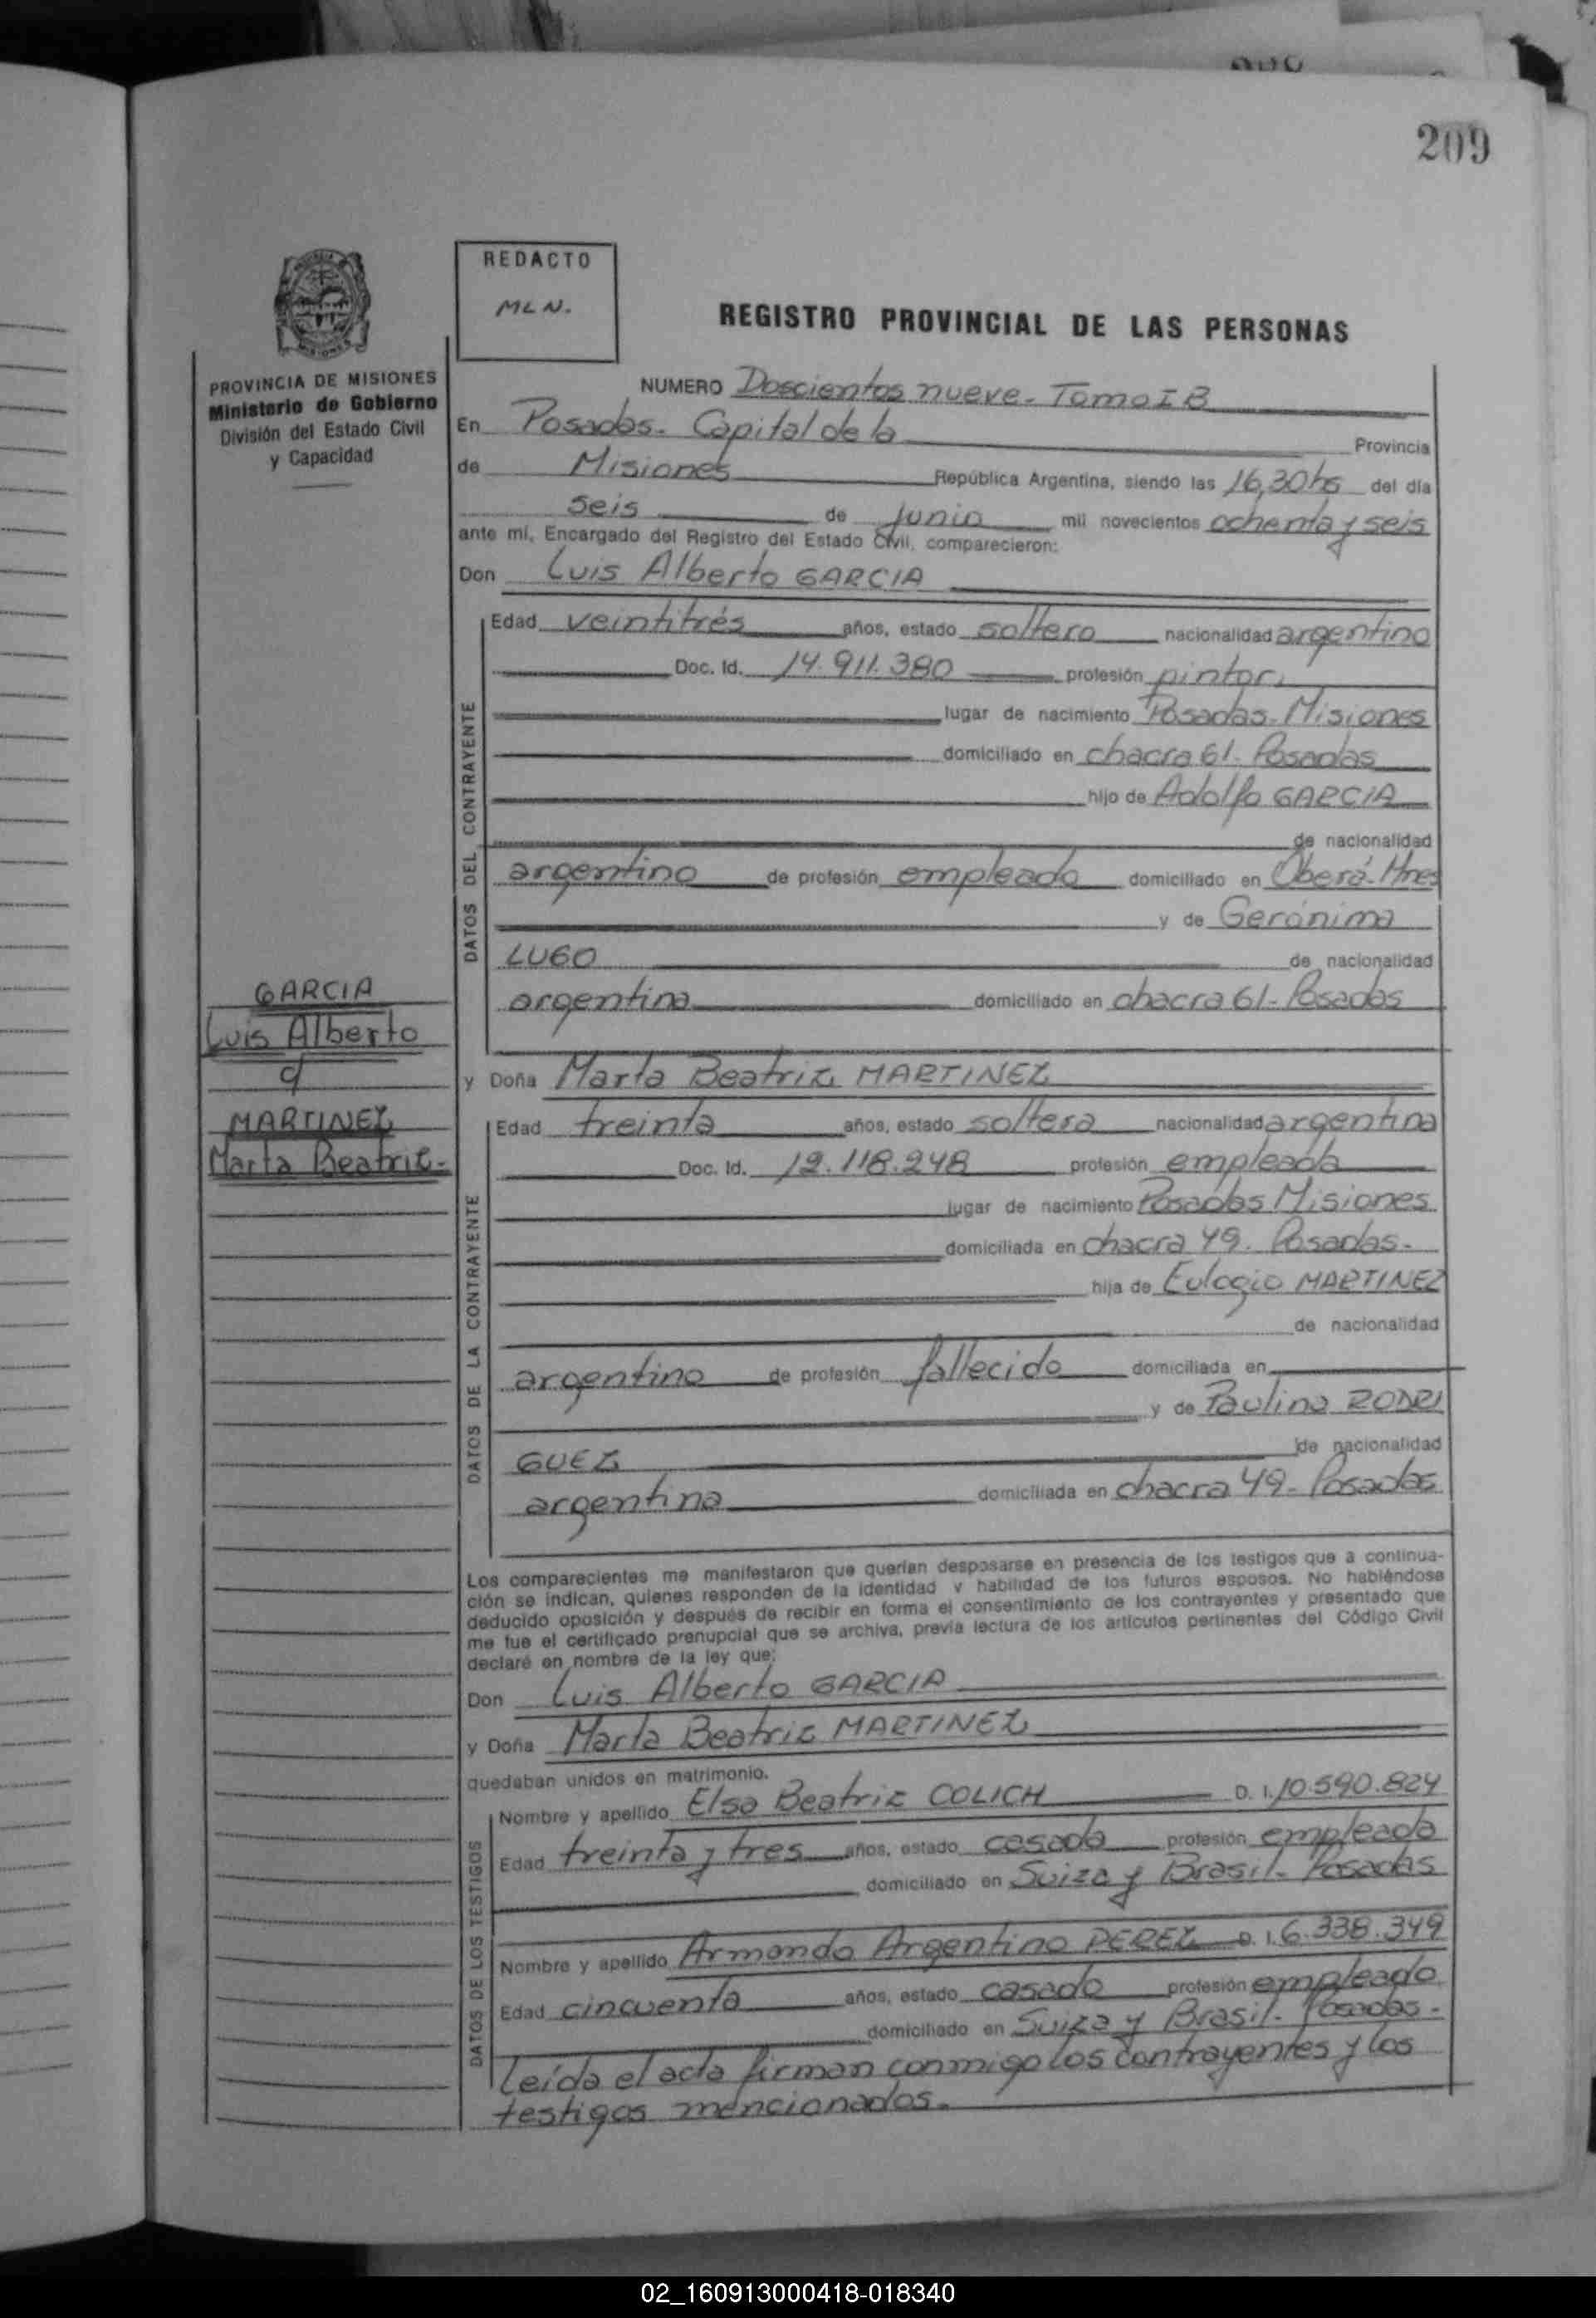 209
REDACTO
MLN.
REGISTRO PROVINCIAL DE LAS PERSONAS
PROVINCIA DE MISIONES
Ministerio de Gobierno
División del Estado Civil
y Capacidad
NUMERO Doscientos nueve - Tomo I B
En Posadas - Capital de la Provincia
de Misiones República Argentina, siendo las 16,30 hs del día
seis de junio mil novecientos ochenta y seis
ante mí, Encargado del Registro del Estado Civil, comparecieron:
Don Luis Alberto GARCIA
DATOS DEL CONTRAYENTE
Edad veintitrés años, estado soltero nacionalidad argentino
Doc. Id. 14.911.380 profesión pintor
lugar de nacimiento Posadas - Misiones
domiciliado en chacra 61 - Posadas
hijo de Adolfo GARCIA
de nacionalidad
argentino de profesión empleado domiciliado en Oberá - Mnes
y de Gerónima
LUGO de nacionalidad
argentina domiciliado en chacra 61 - Posadas
GARCIA
Luis Alberto
c/
MARTINEZ
Marta Beatriz -
y Doña Marta Beatriz MARTINEZ
DATOS DE LA CONTRAYENTE
Edad treinta años, estado soltera nacionalidad argentina
Doc. Id. 12.118.248 profesión empleada
lugar de nacimiento Posadas Misiones
domiciliada en chacra 49 - Posadas -
hija de Eulogio MARTINEZ
de nacionalidad
argentino de profesión fallecido domiciliada en
y de Paulina RODRI
GUEZ de nacionalidad
argentina domiciliada en chacra 49 - Posadas
Los comparecientes me manifestaron que querían desposarse en presencia de los testigos que a continua-
ción se indican, quienes responden de la identidad y habilidad de los futuros esposos. No habiéndose
deducido oposición y después de recibir en forma el consentimiento de los contrayentes y presentado que
me fue el certificado prenupcial que se archiva, previa lectura de los artículos pertinentes del Código Civil
declaré en nombre de la ley que:
Don Luis Alberto GARCIA
y Doña Marta Beatriz MARTINEZ
quedaban unidos en matrimonio.
DATOS DE LOS TESTIGOS
Nombre y apellido Elsa Beatriz COLICH D. I. 10.590.824
Edad treinta y tres años, estado casada profesión empleada
domiciliado en Suiza y Brasil - Posadas
Nombre y apellido Armando Argentino PEREZ D. I. 6.338.349
Edad cincuenta años, estado casado profesión empleado
domiciliado en Suiza y Brasil - Posadas -
Leída el acta firman conmigo los contrayentes y los
testigos mencionados.
02_160913000418-018340